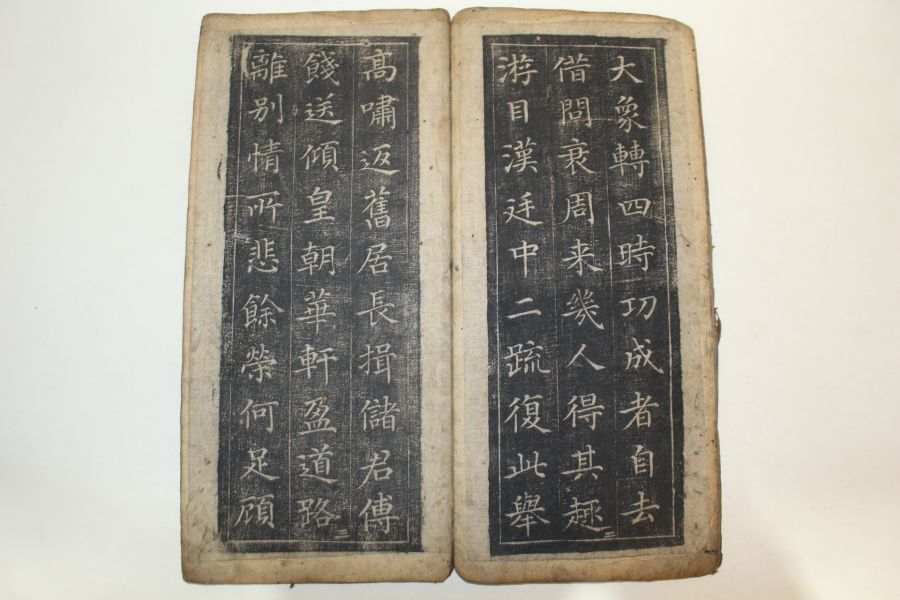 大象轉四時功成者自去
借問衰周来幾人得其趣
游目漢廷中二疏復此舉
高嘯返舊居長揖儲君傅
餞送傾皇朝華軒盈道路
離別情所悲餘榮何足顧